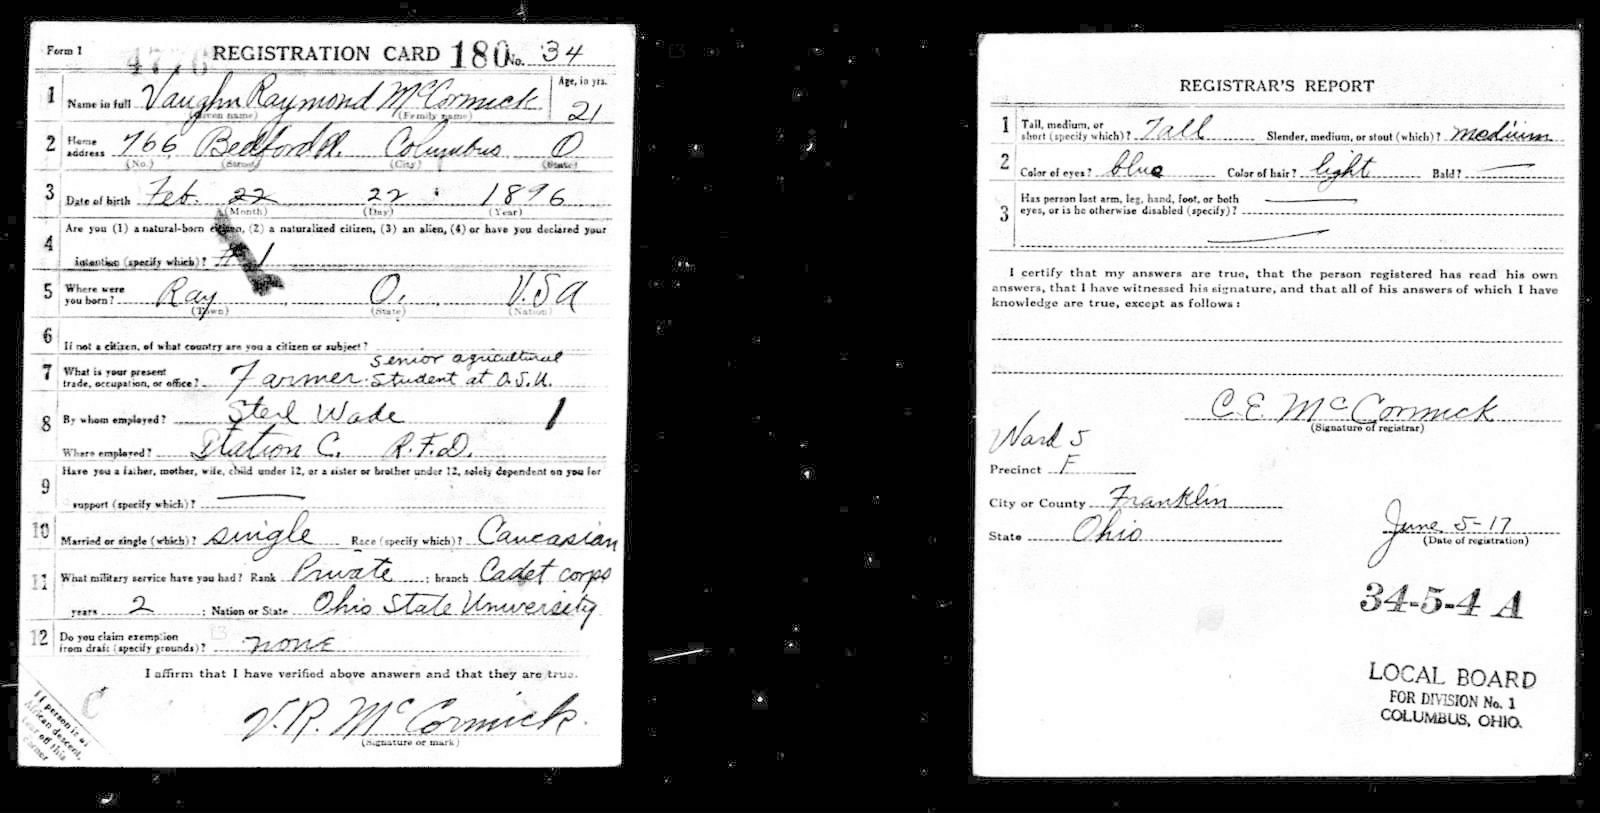 Form 1 4776 REGISTRATION CARD 180 No. 34
1 Name in full Vaughn Raymond McCormick Age, in yrs. 21
(Given name) (Family name)
2 Home address 766 Bedford Pl. Columbus O
(No.) (Street) (City) (State)
3 Date of birth Feb. 22 22 1896
(Month) (Day) (Year)
4 Are you (1) a natural-born citizen, (2) a naturalized citizen, (3) an alien, (4) or have you declared your
intention (specify which)? # 1
5 Where were you born? Ray O. U.S.A
(Town) (State) (Nation)
6 If not a citizen, of what country are you a citizen or subject?
7 What is your present trade, occupation, or office? Farmer senior agricultural student at O.S.U.
8 By whom employed? Wade 1
Where employed? Station C. R.F.D.
9 Have you a father, mother, wife, child under 12, or a sister or brother under 12, solely dependent on you for
support (specify which)?
10 Married or single (which)? single Race (specify which)? Caucasian
11 What military service have you had? Rank Private ; branch Cadet corps
years 2 ; Nation or State Ohio State University
12 Do you claim exemption from draft (specify grounds)? none
I affirm that I have verified above answers and that they are true.
V. R. McCormick.
(Signature or mark)
C
If person is of
African descent,
tear off this
corner
REGISTRAR'S REPORT
1 Tall, medium, or short (specify which)? Tall Slender, medium, or stout (which)? medium
2 Color of eyes? blue Color of hair? light Bald? —
3 Has person lost arm, leg, hand, foot, or both
eyes, or is he otherwise disabled (specify)?
I certify that my answers are true, that the person registered has read his own
answers, that I have witnessed his signature, and that all of his answers of which I have
knowledge are true, except as follows:
C. E. McCormick
(Signature of registrar)
Ward 5
Precinct F
City or County Franklin
State Ohio
June 5-17
(Date of registration)
34-5-4 A
LOCAL BOARD
FOR DIVISION No. 1
COLUMBUS, OHIO.